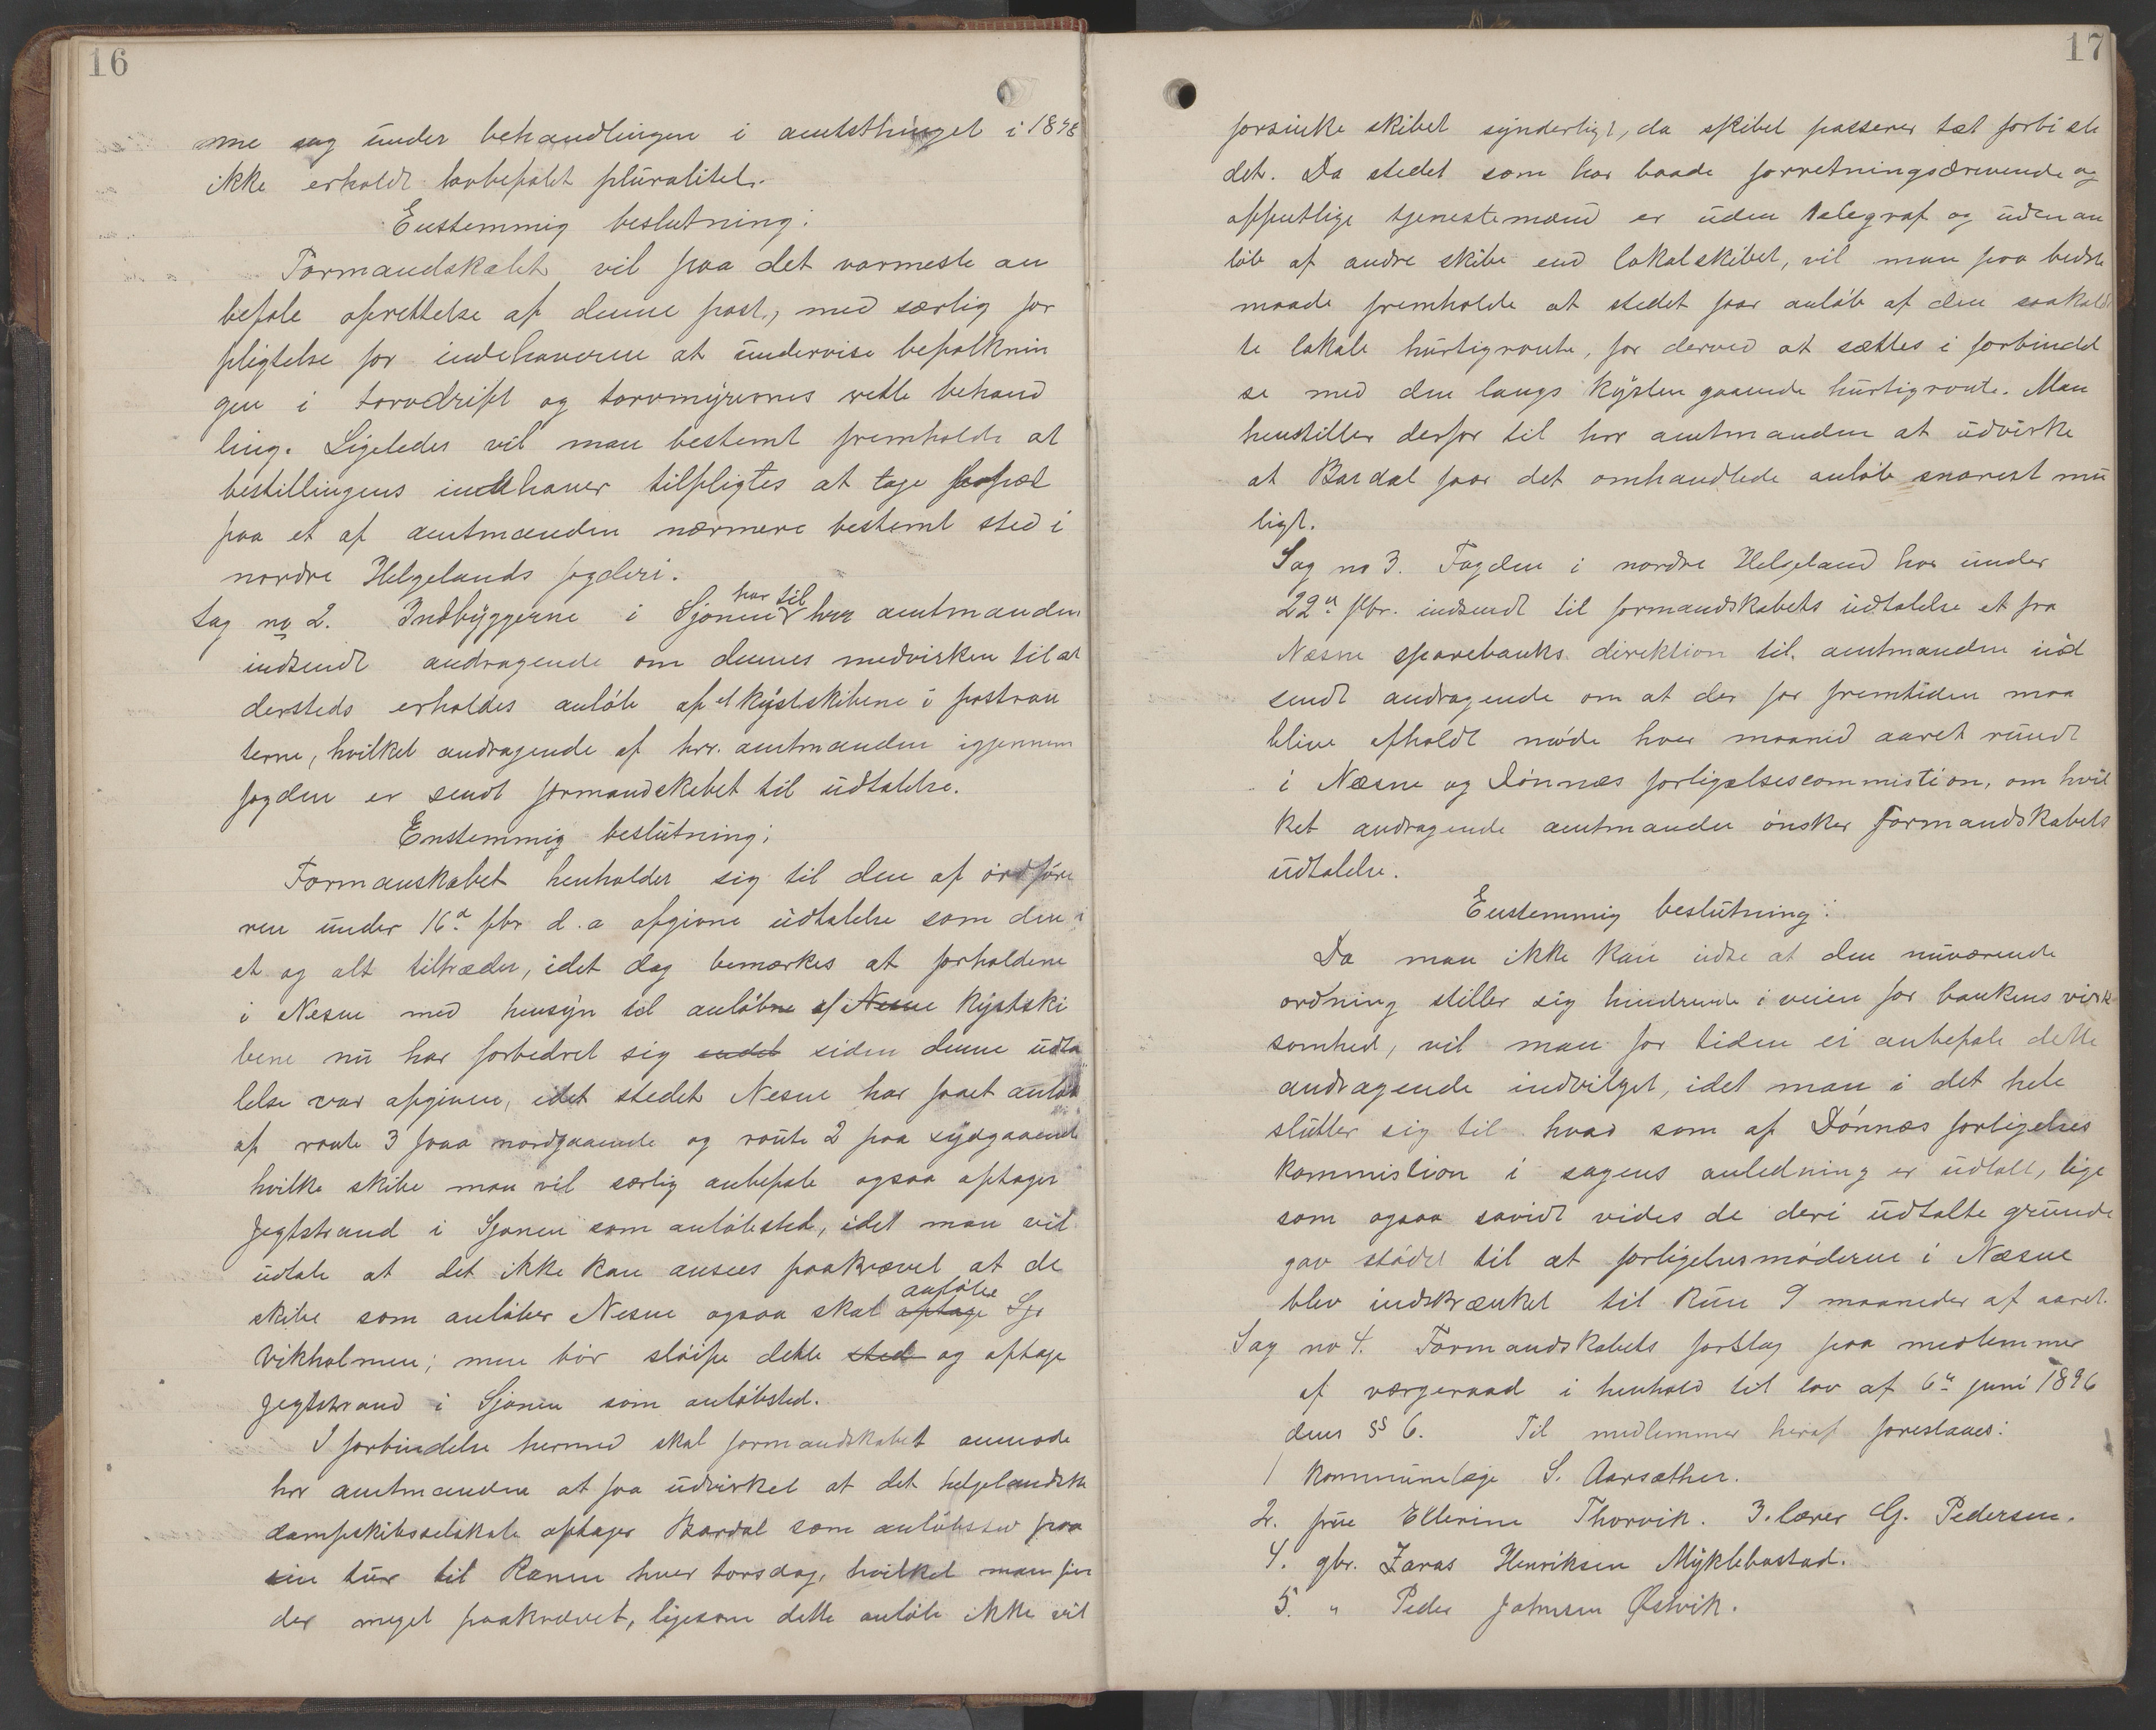 16
nne sag under behandlingen i amtsthinget i 1898
ikke erholdt lovbefalet pluralitet.
Enstemmig beslutning:
Formandskabet vil paa det varmeste an
befale oprettelse af denne post, med særlig for
pligtelse for indehaveren at undervise befolknin
gen i torvdrift og torvmyrernes rette behand
ling. Ligeledes vil man bestemt fremholde at
bestillingens indehaver tilpligtes at tage
paa et af amtmanden nærmere bestemt sted i
nordre Helgelands fogderi.
Sag no 2. Indbyggerne i Sjonen har til hrr amtmanden
indsendt andragende om dennes medvirken til at
dersteds erholdes anløb af et kystskibene i postrou
terne, hvilket andragende af hrr. amtmanden igjennem
fogden er sendt formandskabet til udtalelse.
Enstemmig beslutning;
Formanskabet henholder sig til den af ordføre
ren under 16d fbr d.a afgivne udtalelse som den i
et og alt tiltræder, idet dog bemærkes at forholdene
i Nesne med hensyn til anløbne af Nesne kystski
bene nu har forbedret sig endel siden denne udta
lelse var afgiven, idet stedet Nesne har faaet anløb
af route 3 paa nordgaaende og route 2 paa sydgaaende
hvilke skibe man vil særlig anbefale ogsaa optager
Jegtstrand i Sjonen som anløbsted, idet man vil
udtale at det ikke kan ansees paakrævet at de
skibe som anløber Nesne ogsaa skal optage anløbe Sør
Vikholmen; men bør sløife dette sted og optage
Jegtstrand i Sjonen som anløbsted.
I forbindelse hermed skal formandskabet anmode
hrr amtmanden at faa udvirket at det helgelandske
dampskibsselskab optager Bardal som anløbssted paa
sin tur til Ranen hver torsdag, hvilket man fin
der meget paakrævet, ligesom dette anløb ikke vil
17
forsinke skibet synderligt, da skibet passerer tæt forbi ste
det. Da stedet som har baade forretningsdrivende og
offentlige tjenestemænd er uden telegraf og uden an
løb af andre skibe end lokalskibet, vil man paa bedste
maade fremholde at stedet faar anløb af den saakald
te lokale hurtigroute, for derved at sættes i forbindel
se med den langs kysten gaaende hurtigroute. Man
henstiller derfor til hrr amtmanden at udvirke
at Bardal faar det omhandlede anløb snarest mu
ligt.
Sag no 3. Fogden i nordre Helgeland har under
22d fbr. indsendt til formandskabets udtalelse et fra
Næsne sparebanks direktion til amtmanden ud
sendt andragende om at der for fremtiden maa
blive afholdt møde hver maaned aaret rundt
i Næsne og Dønnæs forligelsescommistion, om hvil
ket andragende amtmanden ønsker formandskabets
udtalelse.
Enstemmig beslutning:
Da man ikke kan indse at den nuværende
ordning stiller sig hindrende i veien for bankens virk
somhed, vil man for tiden ei anbefale dette
andragende indvilget, idet man i det hele
slutter sig til hvad som af Dønnæs forligelses
kommistion i sagens anledning er udtalt, lige
som ogsaa savidt vides de deri udtalte grunde
gav stødet til at forligelsesmøderne i Næsne
blev indskrænket til kun 9 maaneder af aaret.
Sag no 4. Formandskabets forslag paa medlemmer
af værgeraad i henhold til lov af 6te juni 1896
dens §§ 6. Til medlemmer heraf foreslaaes:
1 kommunelæge S. Aarsæther.
2. frue Ellerine Thorvik. 3. lærer G. Pedersen.
4. gbr. Zaras Henriksen Myklebostad.
5. " Peder Johnsen Østvik.